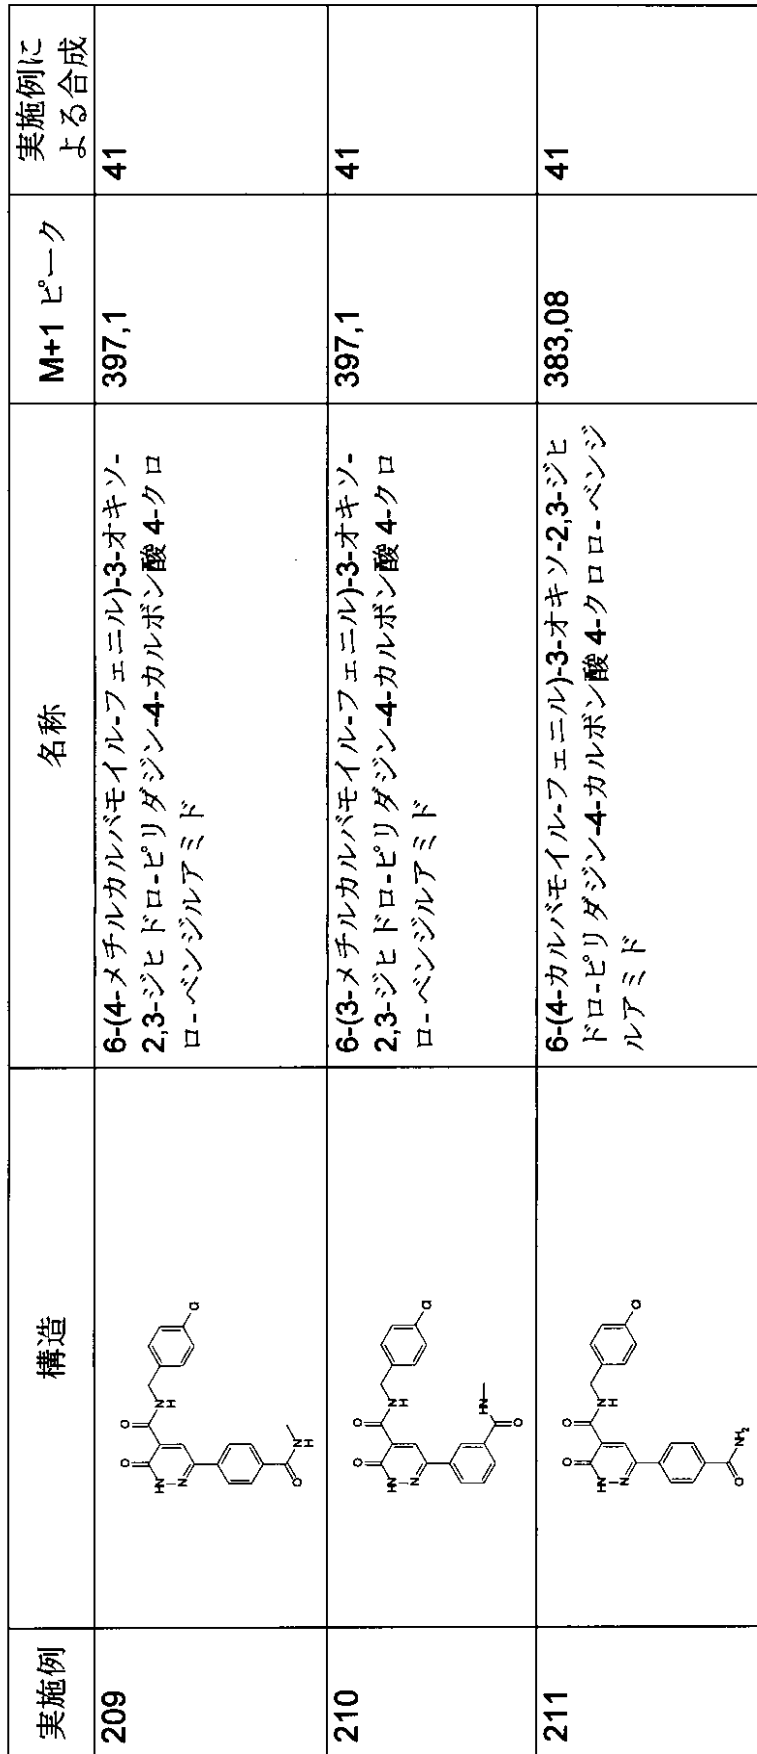 実施例
構造
名称
M+1 ピーク
実施例に
よる合成
209
6-(4-メチルカルバモイル-フェニル)-3-オキソ-
2,3-ジヒドロ-ピリダジン-4-カルボン酸 4-クロ
ロ-ベンジルアミド
397,1
41
210
6-(3-メチルカルバモイル-フェニル)-3-オキソ-
2,3-ジヒドロ-ピリダジン-4-カルボン酸 4-クロ
ロ-ベンジルアミド
397,1
41
211
6-(4-カルバモイル-フェニル)-3-オキソ-2,3-ジヒ
ドロ-ピリダジン-4-カルボン酸 4-クロロ-ベンジ
ルアミド
383,08
41